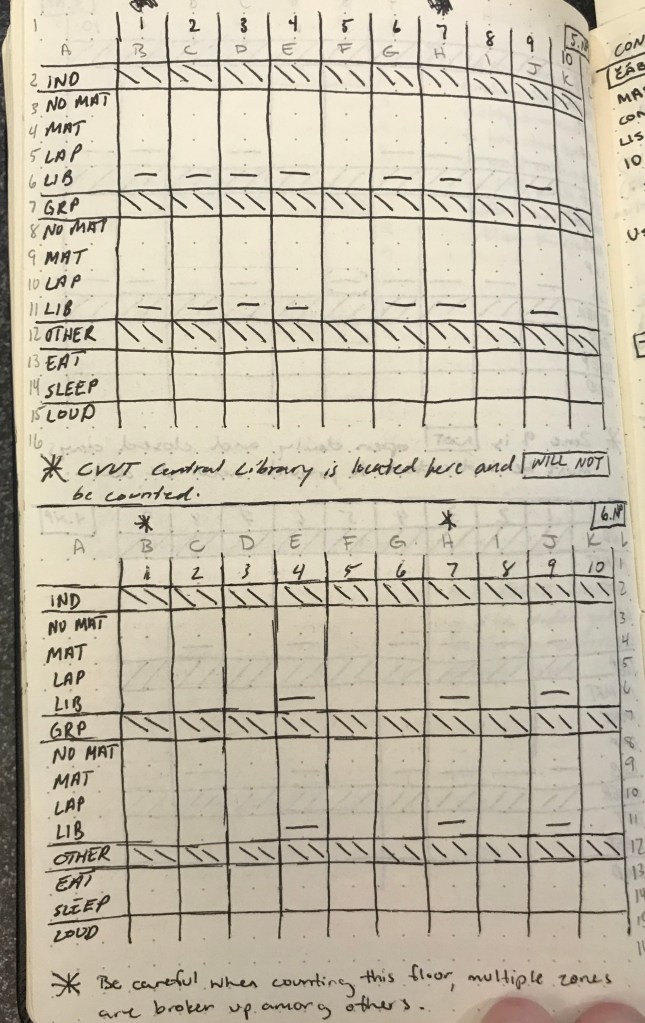 1 1 2 3 4 5 6 7 8 9 10 5.NP
A B C D E F G H I J K
2 IND
3 NO MAT
4 MAT
5 LAP
6 LIB — — — — — — —
7 GRP
8 NO MAT
9 MAT
10 LAP
11 LIB — — — — — — —
12 OTHER
13 EAT
14 SLEEP
15 LOUD
16
* CVUT Central Library is located here and WILL NOT
be counted.
* * 6.NP
A B C D E F G H I J K L
1 2 3 4 5 6 7 8 9 10 1
IND 2
NO MAT 3
MAT 4
LAP 5
LIB — — — 6
GRP 7
NO MAT 8
MAT 9
LAP 10
LIB — — — 11
OTHER 12
EAT 13
SLEEP 14
LOUD 15
* Be careful when counting this floor, multiple zones
are broken up among others.
CON
MA
CON
LIS
10